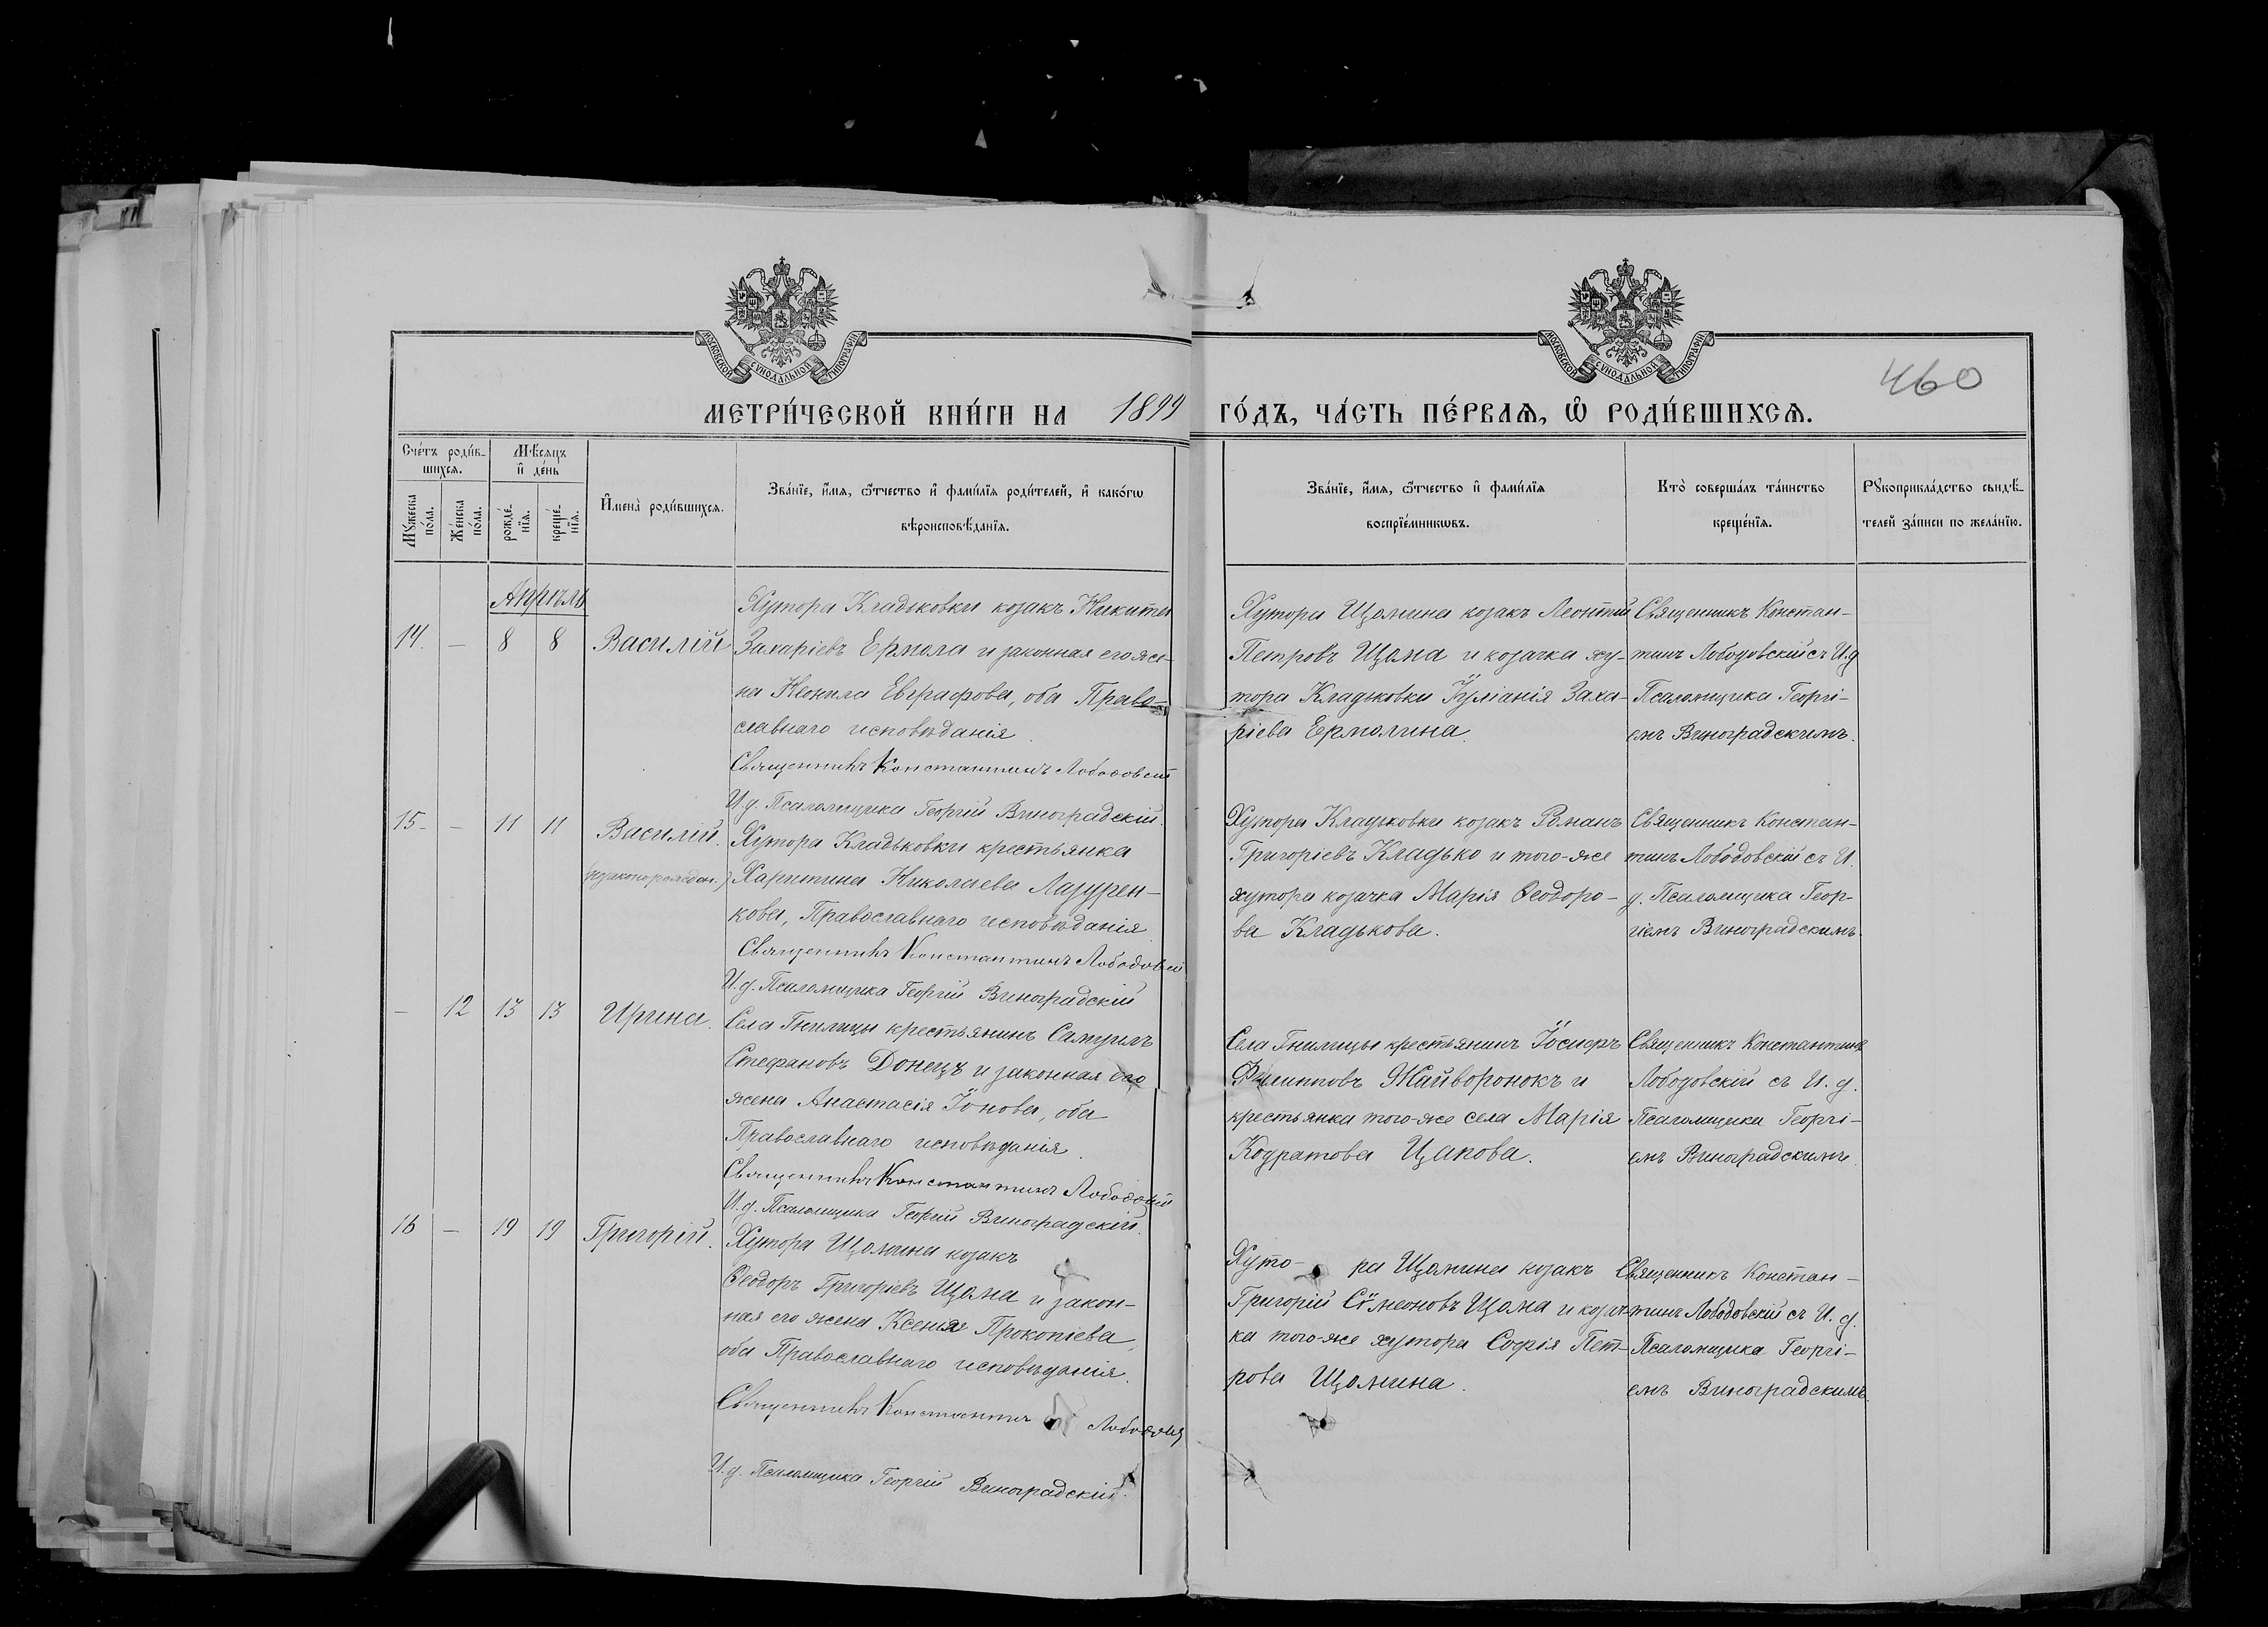 МОСКОВСКОЙ СѴНОДАЛЬНОЙ ТИПОГРАФІИ
МОСКОВСКОЙ СѴНОДАЛЬНОЙ ТИПОГРАФІИ
460
МЕТРИ́ЧЕСКОЙ КНИ́ГИ НА 1899 ГО́ДЪ, ЧА́СТЬ ПЕ́РВАЯ, Ѡ РОДИ́ВШИХСЯ.
Сче́тъ роди́в-
шихся.
Мꙋ́жеска
по́ла.
Же́нска
по́ла.
Мѣ́сяцъ
и҆ де́нь
рожде́-
нїѧ.
креще́-
нїѧ.
И҆мена̀ роди́вшихсѧ.
Зва́нїе, и҆́мѧ, ѻ҆́тчество и҆ фами́лїѧ роди́телей, и҆ како́гѡ
вѣроисповѣ́данїѧ.
Зва́нїе, и҆́мѧ, ѻ҆́тчество и҆ фами́лїѧ
воспрїе́мникѡвъ.
Кто̀ соверша́лъ та́инство
креще́нїѧ.
Рꙋкоприкла́дство свидѣ́-
телей за́писи по жела́нїю.
Апрѣль
14. — 8 8 Василій
Хутора Кладьковки козакъ Никита
Захаріевъ Ермола и законная его же-
на Неонила Евграфова, оба Право-
славнаго исповѣданія.
Священникъ Константинъ Лободовскій
И. д. Псаломщика Георгій Виноградскій.
Хутора Щомина козакъ Леонтій
Петровъ Щома и козачка ху-
тора Кладьковки Іуліанія Заха-
ріева Ермолина.
Священникъ Констан-
тинъ Лободовскій съ И.д
Псаломщика Георгі-
емъ Виноградскимъ.
15- — 11 11 Василій.
(незаконорожден.)
Хутора Кладьковки крестьянка
Харитина Николаева Лазурен-
кова, Православнаго исповѣданія
Священникъ Константинъ Лободовскій
И. д. Псаломщика Георгій Виноградскій
Хутора Кладьковки козакъ Романъ
Григоріевъ Кладько и того-же
хутора козачка Марія Ѳеодоро-
ва Кладькова.
Священникъ Констан-
тинъ Лободовскій съ И.
д. Псаломщика Геор-
гіемъ Виноградскимъ.
— 12 13 13 Ирина.
Села Гнилицы крестьянинъ Самуилъ
Стефановъ Донецъ и законная его
жена Анастасія Іонова, оба
Православнаго исповѣданія.
Священникъ Константинъ Лободовскій
И. д. Псаломщика Георгій Виноградскій.
Села Гнилицы крестьянинъ Іосифъ
Филипповъ Жайворонокъ и
крестьянка того-же села Марія
Кодратова Цапова.
Священникъ Константинъ
Лободовскій съ И. д.
Псаломщика Георгі-
емъ Виноградскимъ.
16 — 19 19 Григорій.
Хутора Щомина козакъ
Ѳеодоръ Григоріевъ Щома и закон-
ная его жена Ксенія Прокопіева,
оба Православнаго исповѣданія.
Священникъ Константинъ Лободовскій
И. д. Псаломщика Георгій Виноградскій.
Хуто- ра Щомина козакъ
Григорій Сімеоновъ Щома и козач-
ка того-же хутора Софія Пет-
рова Щомина.
Священникъ Констан-
тинъ Лободовскій съ И. д.
Псаломщика Георгі-
емъ Виноградскимъ.